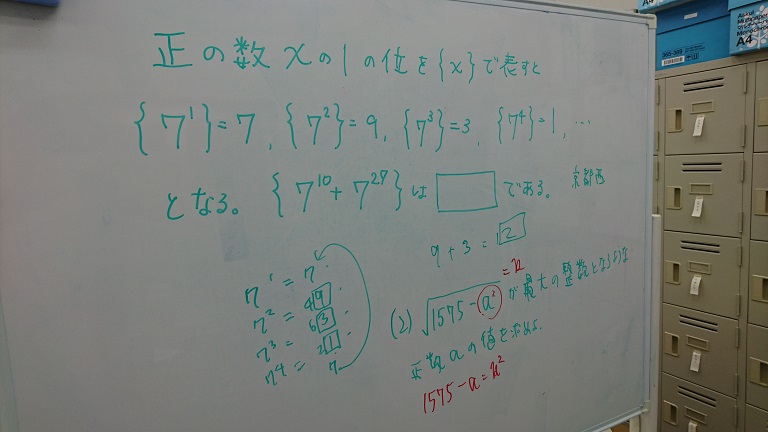 正の数xの1の位を{x}で表すと
{7¹}=7, {7²}=9, {7³}=3, {7⁴}=1, …
となる。{7¹⁰+7²⁷}は□である。 京都西
9+3=12
7¹=7
7²=49
7³=63
7⁴=21
7
=n
(2) √1575-a² が最大の整数となるような
正の数aの値を求めよ.
1575-a=n²
A4
A4